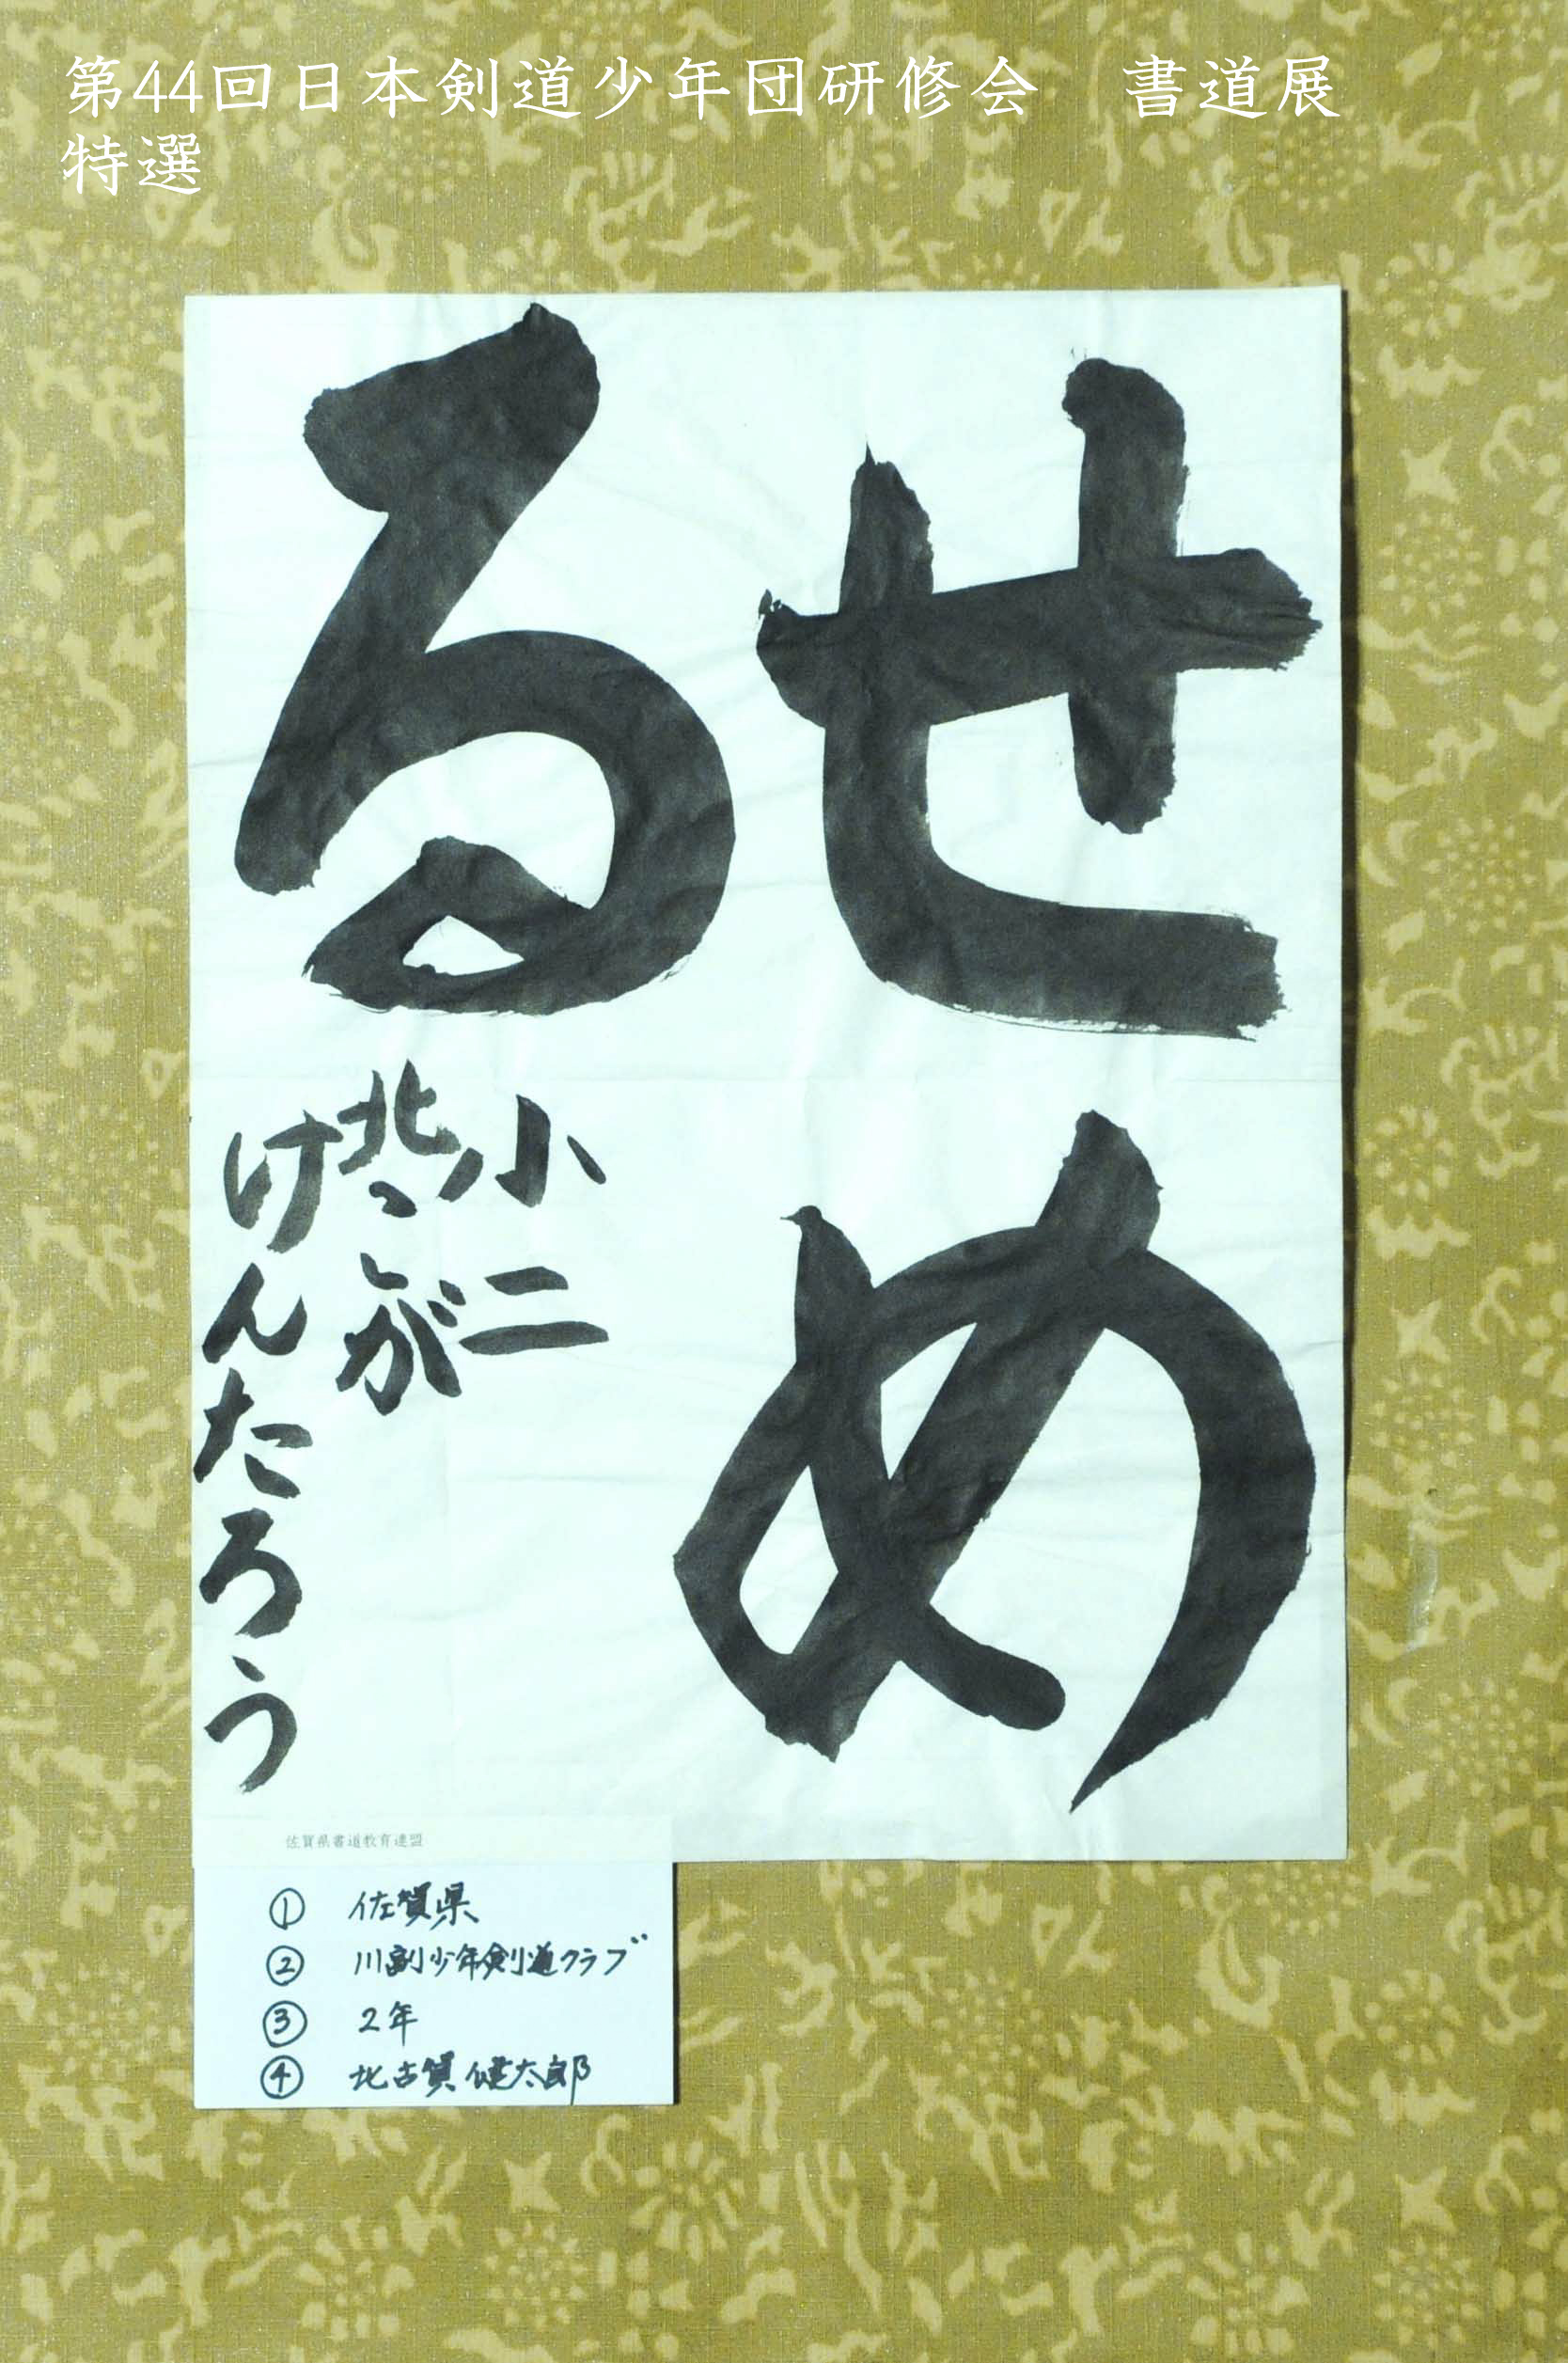 第44回日本剣道少年団研修会　書道展
特選
せめ
る
小二
北こが
けんたろう
佐賀県書道教育連盟
① 佐賀県
② 川副少年剣道クラブ
③ 2年
④ 北古賀 健太郎